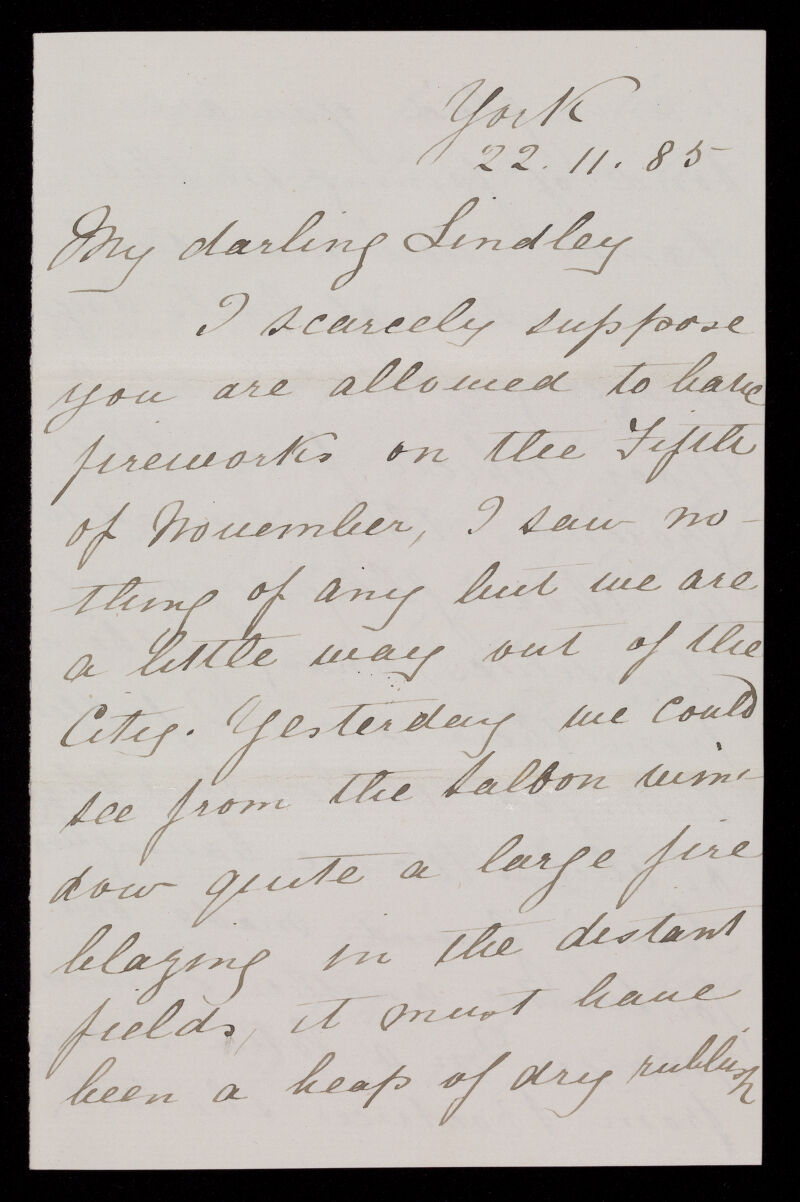 York
22. 11. 85
My darling Lindley
I scarcely suppose
you are allowed to have
fireworks on the Fifth
of November, I saw no-
thing of any but we are
a little way out of the
City. Yesterday we could
see from the saloon win-
dow quite a large fire
blazing in the distant
fields, it must have
been a heap of dry rubbish